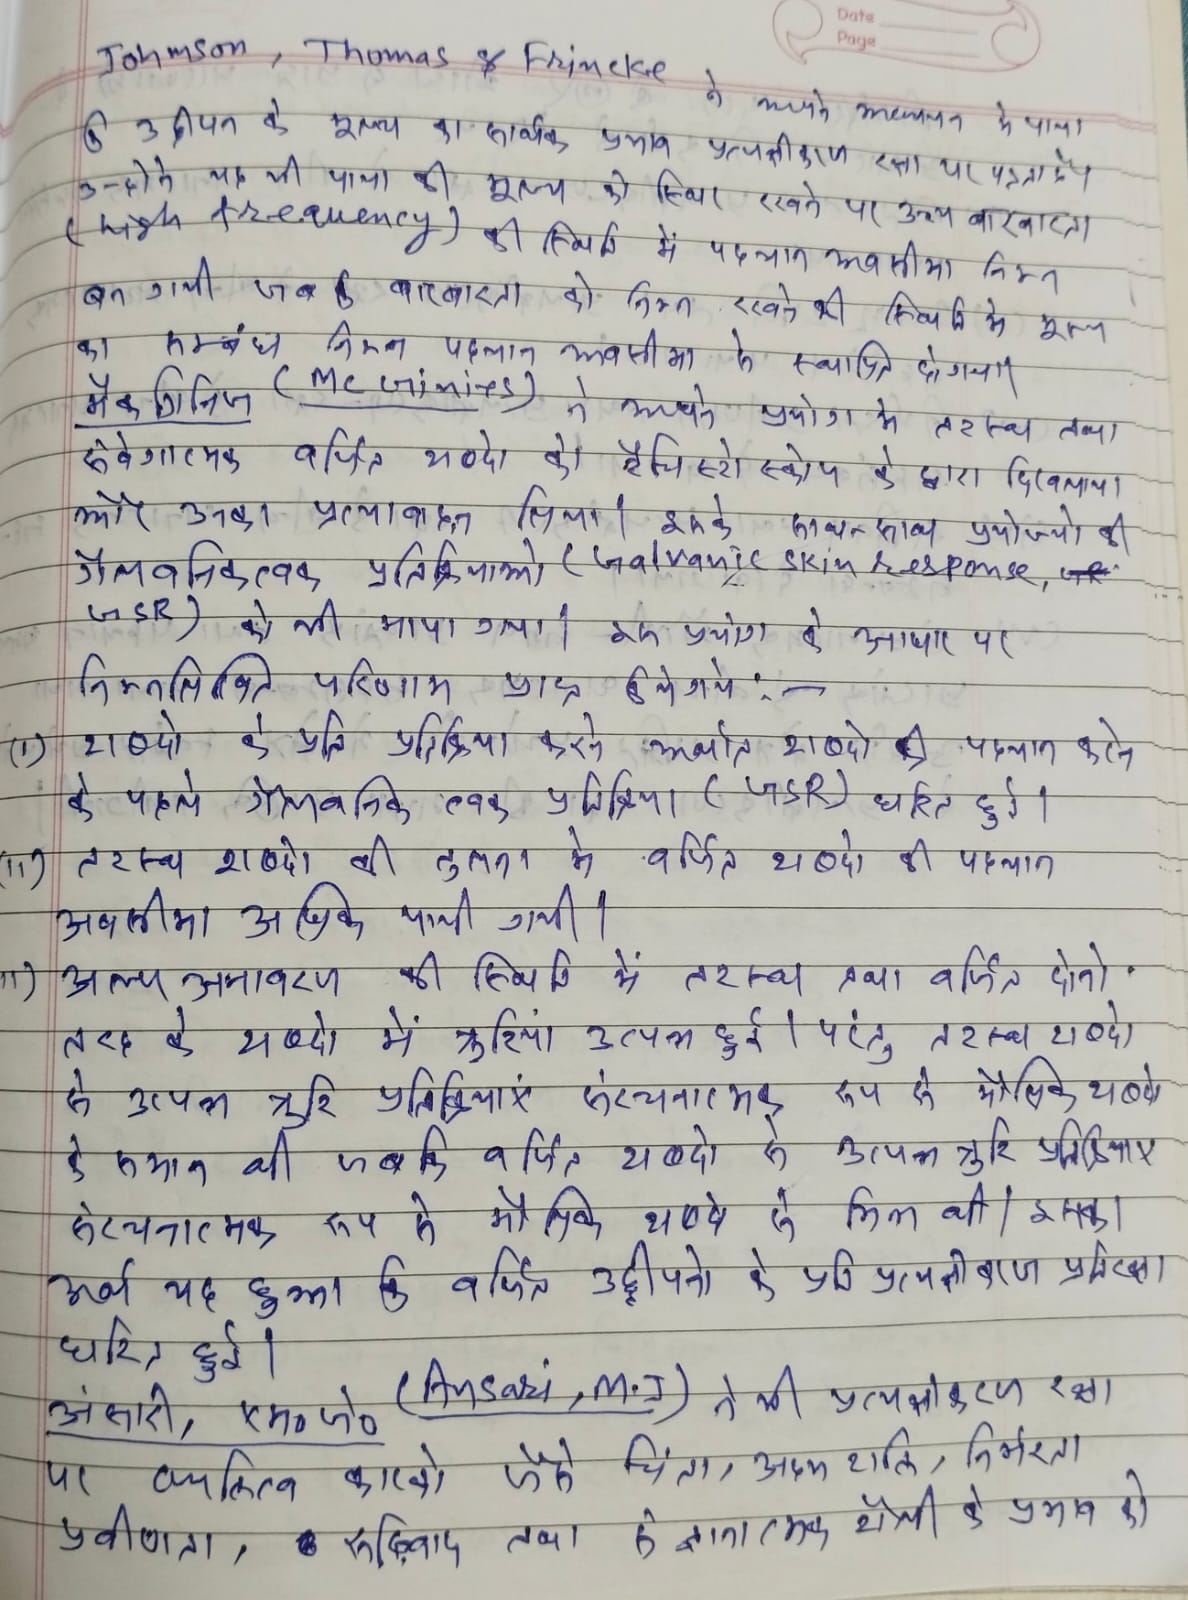 Date
Page
Johmson, Thomas & Frincke ने अपने अध्ययन मे पाया
कि उद्दीपन के मूल्य का सार्थक प्रभाव प्रत्यक्षीकरण रक्षा पर पड़ता है।
उन्होने यह भी पाया की मूल्य को स्थिर रखने पर उच्च बारंबारता
(high frequency) की स्थिति में पहचान अवसीमा निम्न
बन गयी जबकि बारबारता को निम्न रखने की स्थिति मे मूल्य
का सम्बंध निम्न पहचान अवसीमा से स्थापित होगया।
मैकगिनिज (Mc Ginines) ने अपने प्रयोग मे तटस्थ तथा
संवेगात्मक वर्जित शब्दो को टैचिस्टोस्कोप के द्वारा दिखलाया
और उनका प्रत्यावाहन लिया। इसके साथ-साथ प्रयोज्यो की
गैल्वनिकत्वक प्रतिक्रियाओ (Galvanic skin Response,
GSR) को भी मापा गया। इस प्रयोग के आधार पर
निम्नलिखित परिणाम प्राप्त किये गये :—
(i) शब्दो के प्रति प्रतिक्रिया करने अर्थात शब्दो की पहचान करने
के पहले गैल्वनिक त्वक प्रतिक्रिया (GSR) घटित हुई।
(ii) तटस्थ शब्दो की तुलना मे वर्जित शब्दो की पहचान
अवसीमा अधिक पायी गयी।
अल्प अनावरण की स्थिति में तटस्थ तथा वर्जित दोनो
तरह के शब्दो में त्रुटियां उत्पन्न हुई। परंतु तटस्थ शब्दो
से उत्पन्न त्रुटि प्रतिक्रियाएं संरचनात्मक रूप से मौलिक शब्दो
के समान थी जबकि वर्जित शब्दो से उत्पन्न त्रुटि प्रतिक्रियाएं
संरचनात्मक रूप से मौलिक शब्दो से भिन्न थी। इसका
अर्थ यह हुआ कि वर्जित उद्दीपनो के प्रति प्रत्यक्षीकरण प्रतिरक्षा
घटित हुई।
अंसारी, एम० जे० (Ansari, M.J) ने भी प्रत्यक्षीकरण रक्षा
पर व्यक्तित्व कारको जैसे चिंता, अहम शक्ति, निर्भरता
प्रवीणता, रूढ़िवाद तथा संज्ञानात्मक शैली के प्रभाव को